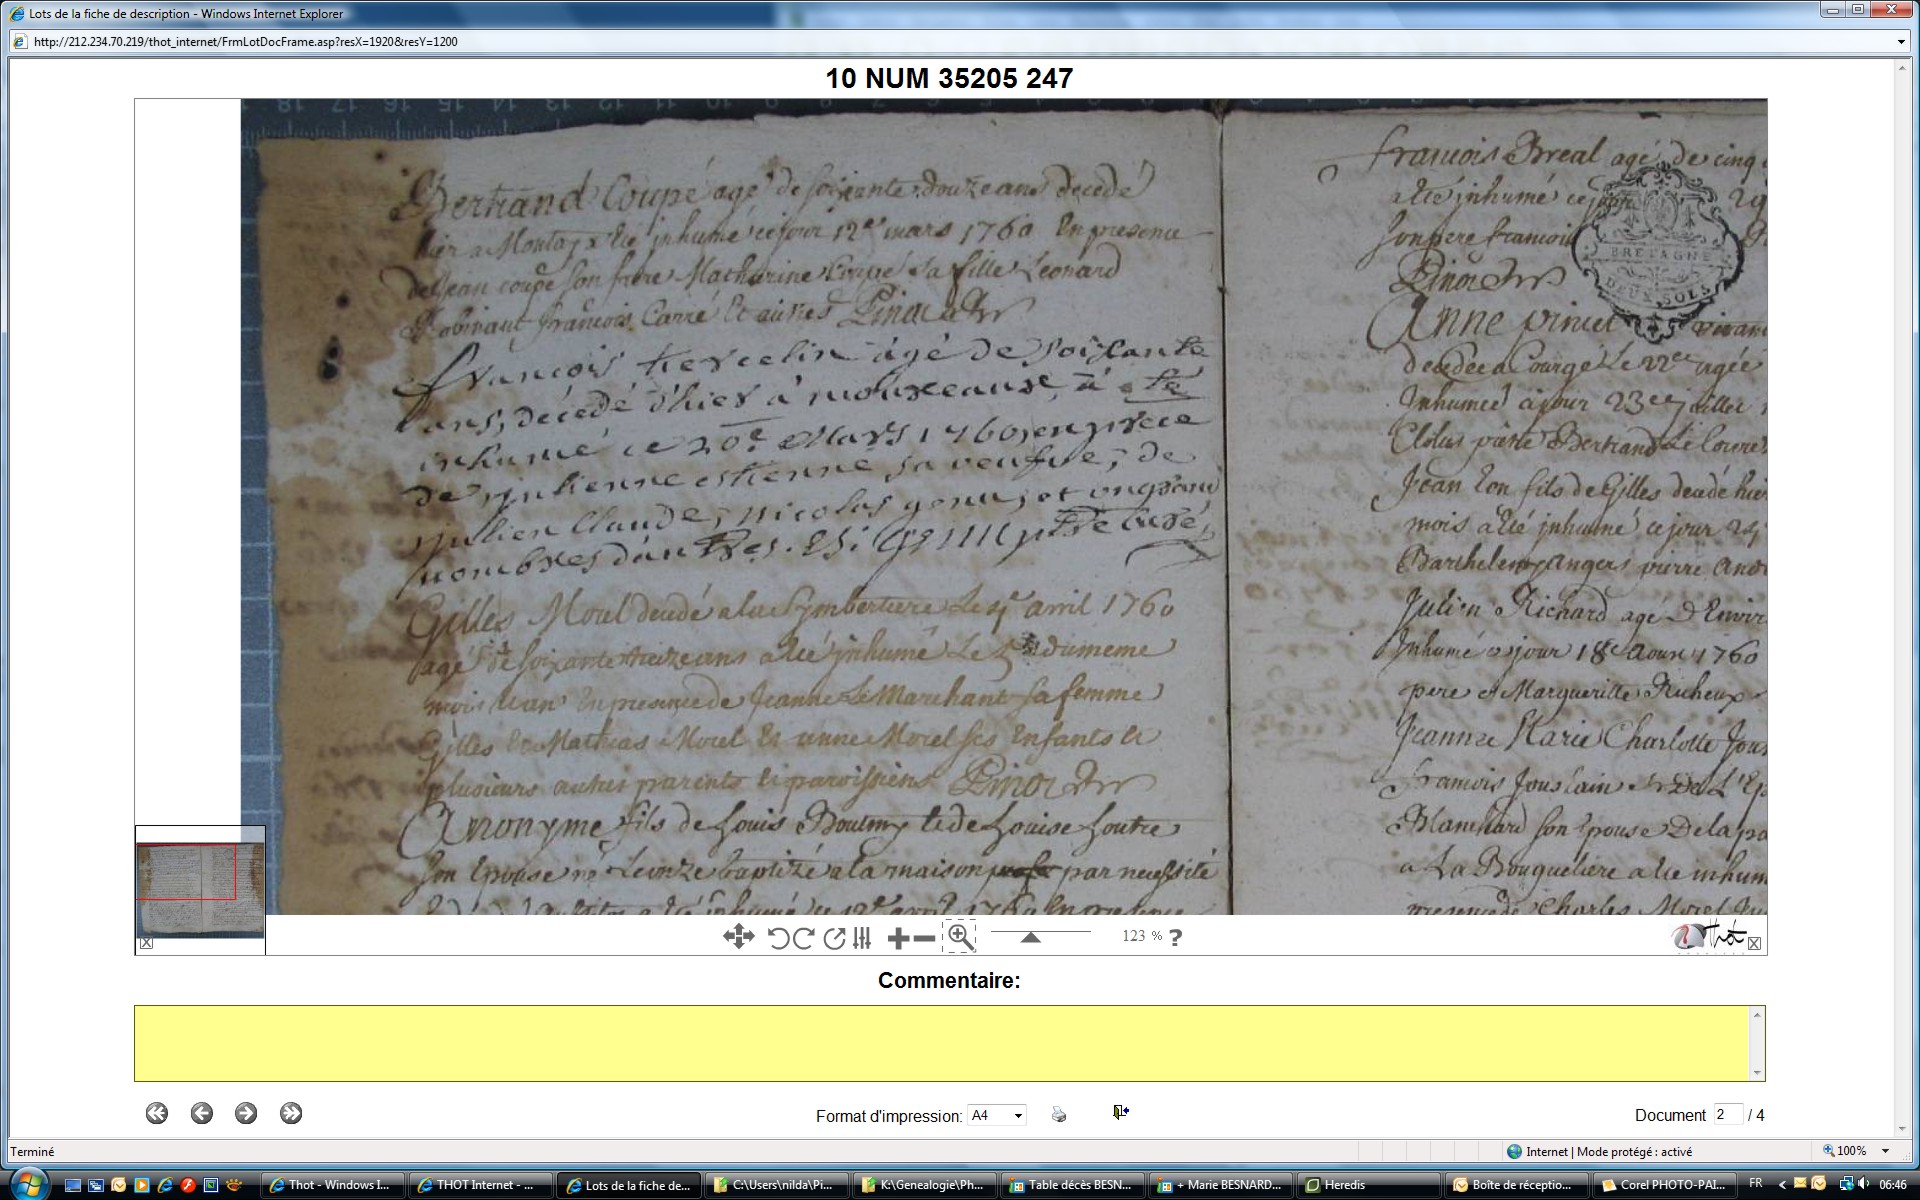 Lots de la fiche de description - Windows Internet Explorer
http://212.234.70.219/thot_internet/FrmLotDocFrame.asp?resX=1920&resY=1200
10 NUM 35205 247
18 17 16 15 14 13 12 11 10 9 8 7 6 5 4 3 2
Bertrand Coupé agé de soixante douze ans decedé
hier a a été inhumé ce jour 12e mars 1760 En presence
de Jean coupé son frere Mathurine Coupé sa fille Leonard
Robinaut francois Carré Et autres Pinot
francois tiercelin âgé de soixante
ans, décédé d'hier à mouxeaux, à été
inhumé ce 20e Mars 1760, en prèce
de julienne estienne sa veufve, de
julien Claude, nicolas et
nombres d'autres.
Gilles Morel decedé a la Le 4e avril 1760
agé de soixante treize ans a été inhumé Le 5 du meme
mois En presence de Jeanne Le Marchant sa femme
Gilles Et Mathias Morel Et anne Morel ses Enfants Et
plusieurs autres parents Et paroissiens Pinot
Anonyme fils de Louis et de Louise Loutre
son Epouse né Le onze baptizé a la maison par necessité
a été inhumé ce 12e avril 1760 En presence
francois Breal agé de cinq
a été inhumé ce jour
son pere francois
Pinot
BRETAGNE
DEUX SOLS
Anne
decedée a Courgé Le 22e agée
Inhumée ce jour 23e juillet
Clolus pierre Bertrand Le
Jean fils de Gilles decedé hier
mois a été inhumé ce jour 24
Barthelemy angers pierre
Julien Richard agé D'Environ
Inhumé ce jour 18e Aoust 1760
pere et Margueritte Richeux
Jeanne Marie Charlotte
francois Jouslain
Blanchard son Epouse De la pa
a La Bouqueliere a été inhum
presence de Charles Morel
123 % ?
Thot
Commentaire:
Format d'impression: A4
Document 2 / 4
Terminé
Internet | Mode protégé : activé
100%
Thot - Windows I...
THOT Internet - ...
Lots de la fiche de...
C:\Users\nilda\Pi...
K:\Genealogie\Ph...
Table décès BESN...
+ Marie BESNARD...
Heredis
Boîte de réceptio...
Corel PHOTO-PAI...
FR
06:46